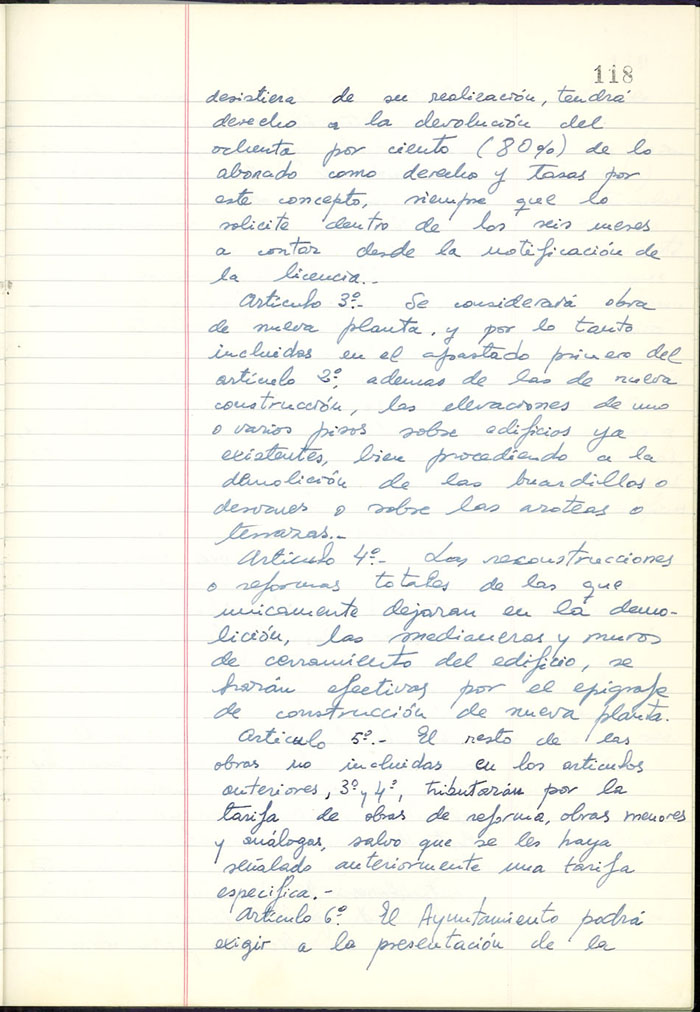 118
desistiera de su realización, tendrá
derecho a la devolución del
ochenta por ciento (80%) de lo
abonado como derecho y tasas por
este concepto, siempre que lo
solicite dentro de los seis meses
a contar desde la notificación de
la licencia.-
Artículo 3º.- Se considerará obra
de nueva planta, y por lo tanto
incluidas en el apartado primero del
artículo 2º, ademas de las de nueva
construcción, las elevaciones de uno
o varios pisos sobre edificios ya
existentes, bien procediendo a la
demolición de las buardillas o
desvanes o sobre las azoteas o
terrazas.-
Artículo 4º.- Las reconstrucciones
o reformas totales de las que
unicamente dejaran en la demo-
lición, las medianeras y muros
de cerramiento del edificio, se
harán efectivas por el epígrafe
de construcción de nueva planta.
Artículo 5º.- El resto de las
obras no incluidas en los artículos
anteriores, 3º y 4º, tributarán por la
tarifa de obras de reforma, obras menores
y análogas, salvo que se les haya
señalado anteriormente una tarifa
especifica.-
Artículo 6º. El Ayuntamiento podrá
exigir a la presentación de la